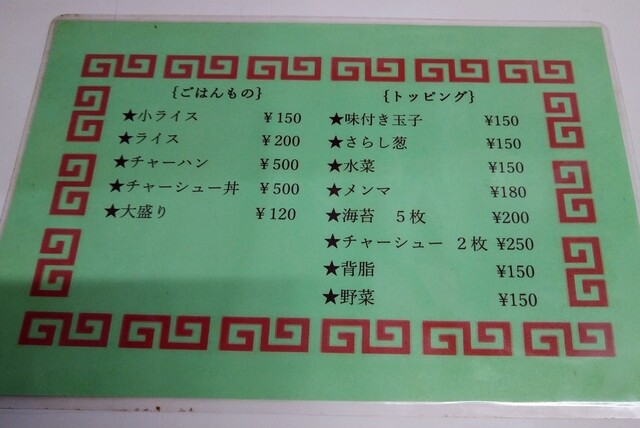 {ごはんもの}
★小ライス ￥150
★ライス ￥200
★チャーハン ￥500
★チャーシュー丼 ￥500
★大盛り ￥120
{トッピング}
★味付き玉子 ¥150
★さらし葱 ¥150
★水菜 ¥150
★メンマ ¥180
★海苔 ５枚 ¥200
★チャーシュー ２枚 ¥250
★背脂 ¥150
★野菜 ¥150